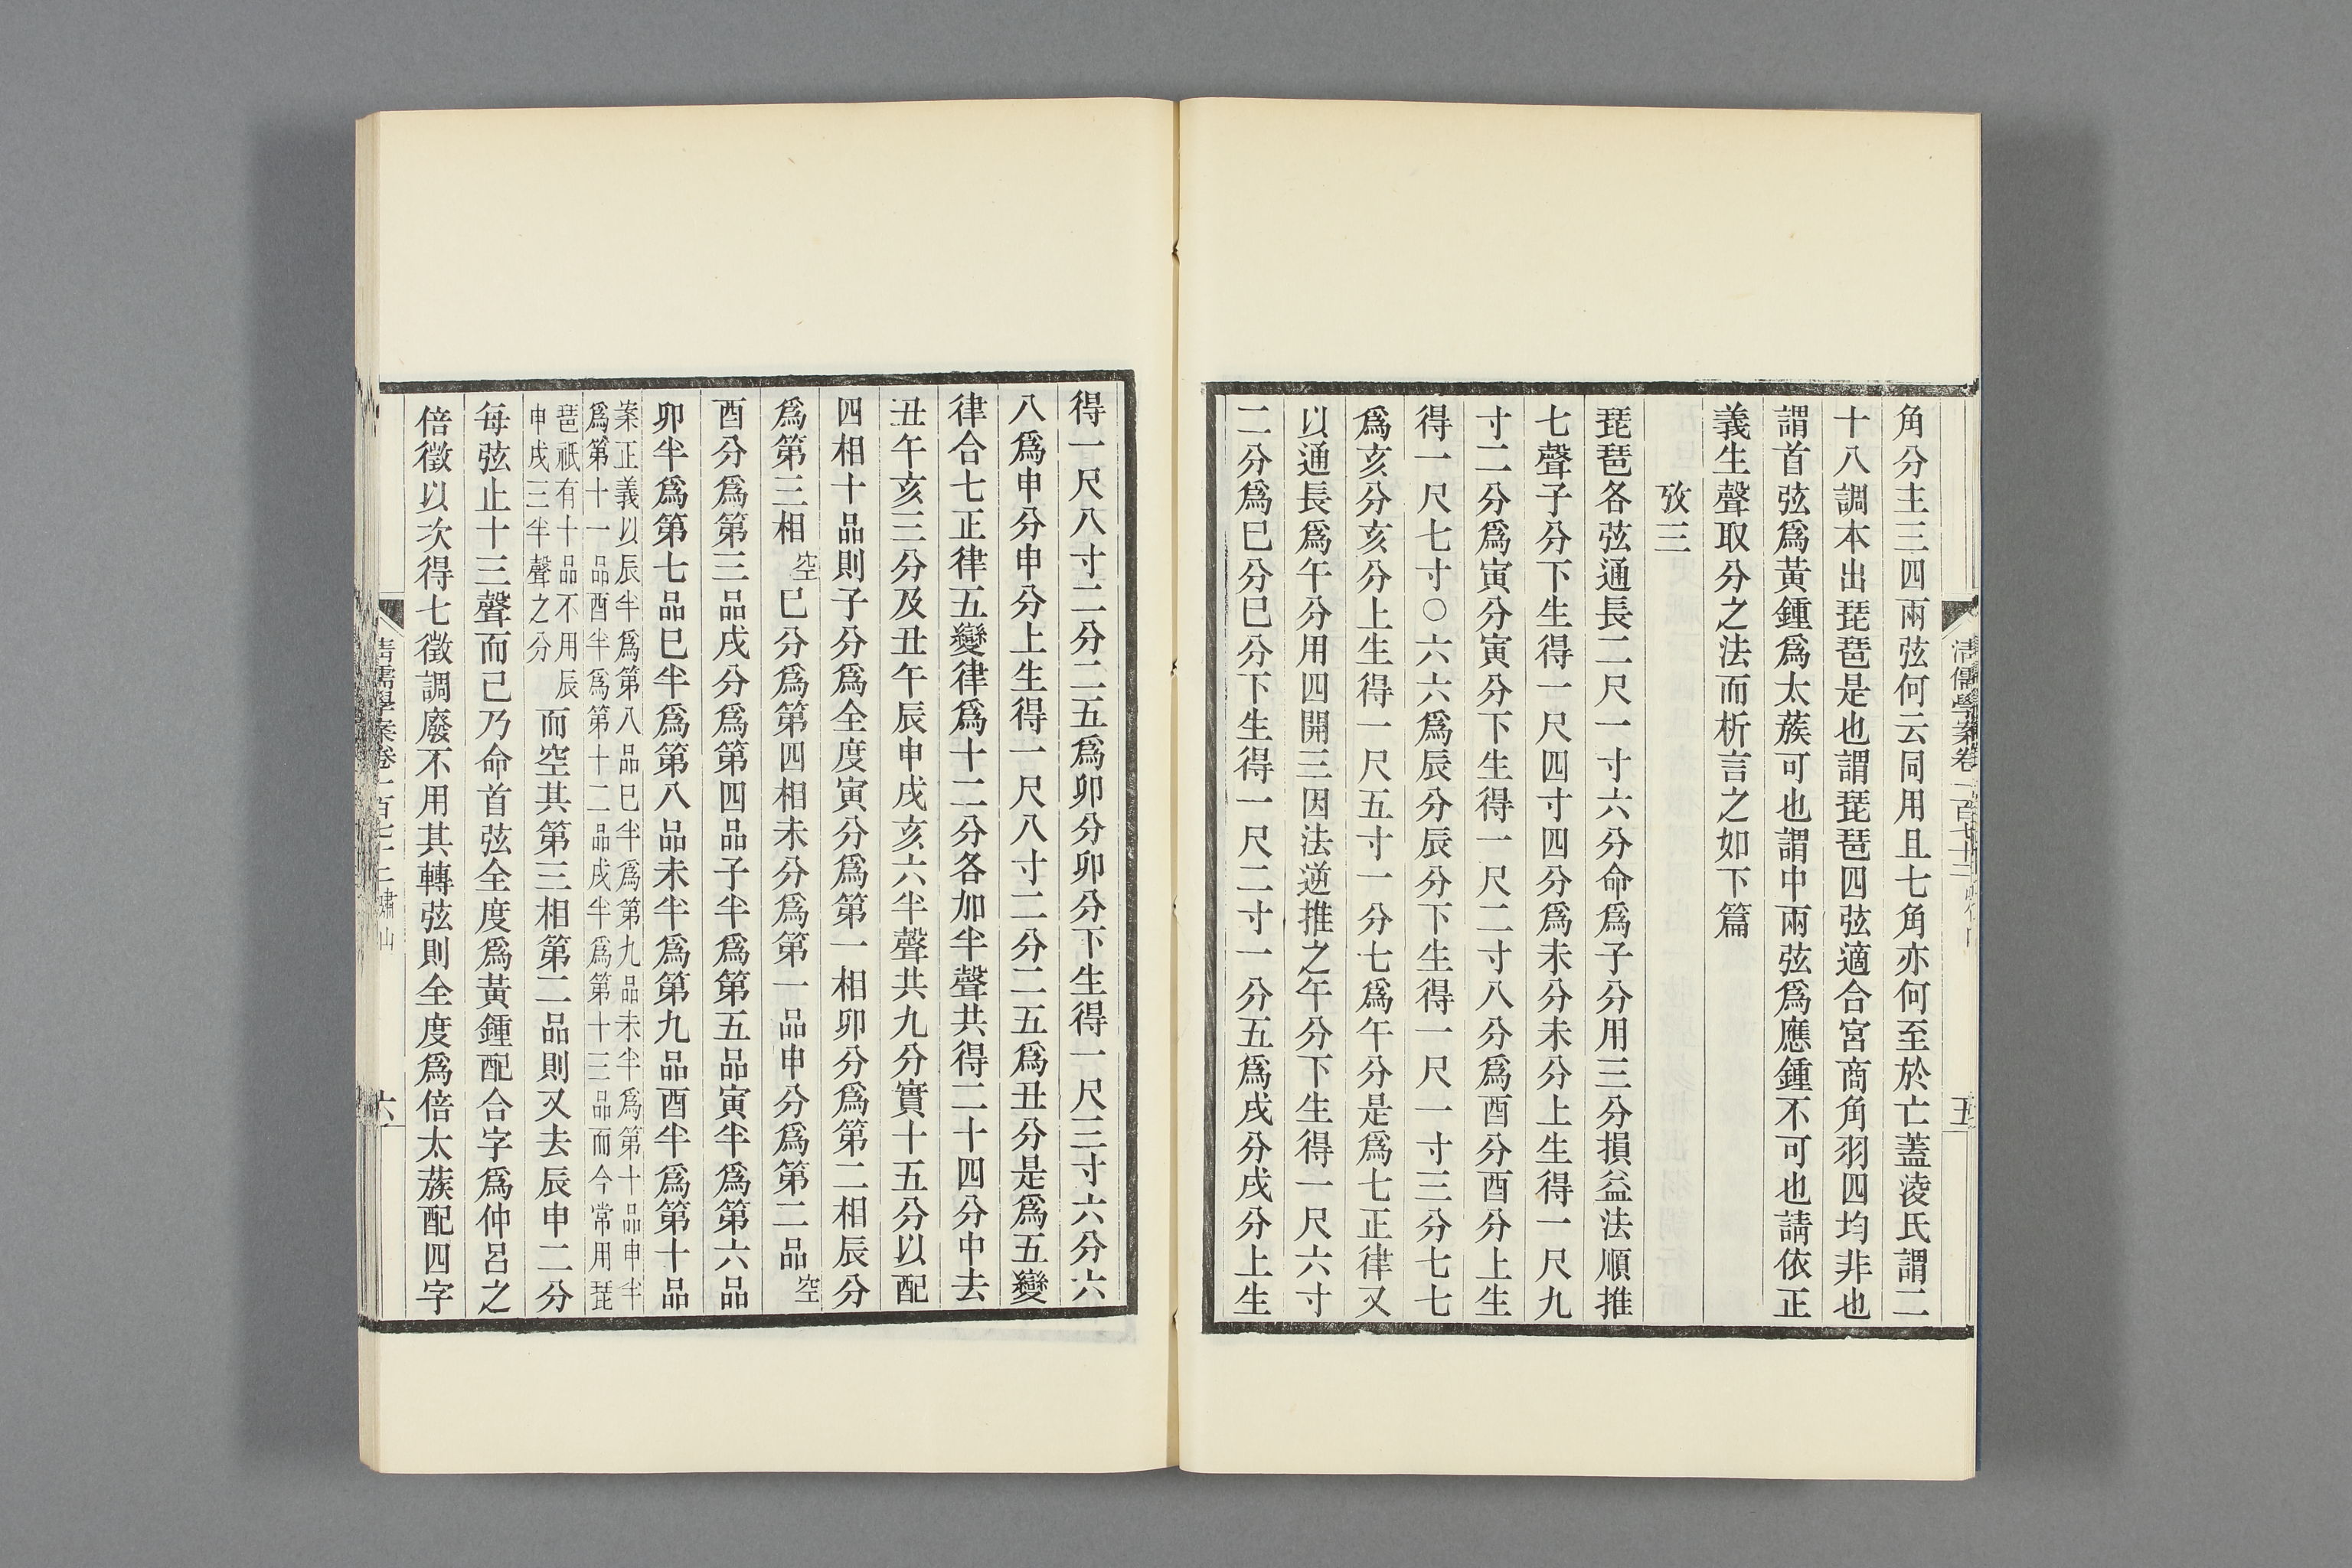 角分主三四兩弦何云同用且七角亦何至於亡蓋淩氏謂二
十八調本出琵琶是也謂琵琶四弦適合宮商角羽四均非也
謂首弦爲黃鍾爲太蔟可也謂中兩弦爲應鍾不可也請依正
義生聲取分之法而析言之如下篇
攷三
琵琶各弦通長二尺一寸六分命爲子分用三分損益法順推
七聲子分下生得一尺四寸四分爲未分未分上生得一尺九
寸二分爲寅分寅分下生得一尺二寸八分爲酉分酉分上生
得一尺七寸〇六六爲辰分辰分下生得一尺一寸三分七七
爲亥分亥分上生得一尺五寸一分七爲午分是爲七正律又
以通長爲午分用四開三因法逆推之午分下生得一尺六寸
二分爲巳分巳分下生得一尺二寸一分五爲戌分戌分上生
清儒學案卷二百七十三
五
得一尺八寸二分二五爲卯分卯分下生得一尺三寸六分六
八爲申分申分上生得一尺八寸二分二五爲丑分是爲五變
律合七正律五變律爲十二分各加半聲共得二十四分中去
丑午亥三分及丑午辰申戌亥六半聲共九分實十五分以配
四相十品則子分爲全度寅分爲第一相卯分爲第二相辰分
爲第三相空巳分爲第四相未分爲第一品申分爲第二品空
酉分爲第三品戌分爲第四品子半爲第五品寅半爲第六品
卯半爲第七品巳半爲第八品未半爲第九品酉半爲第十品
案正義以辰半爲第八品巳半爲第九品未半爲第十品申半
爲第十一品酉半爲第十二品戌半爲第十三品而今常用琵
琶祇有十品不用辰
申戌三半聲之分
而空其第三相第二品則又去辰申二分
每弦止十三聲而已乃命首弦全度爲黃鍾配合字爲仲呂之
倍徵以次得七徵調廢不用其轉弦則全度爲倍太蔟配四字
清儒學案卷二百七十三 嘯山
六